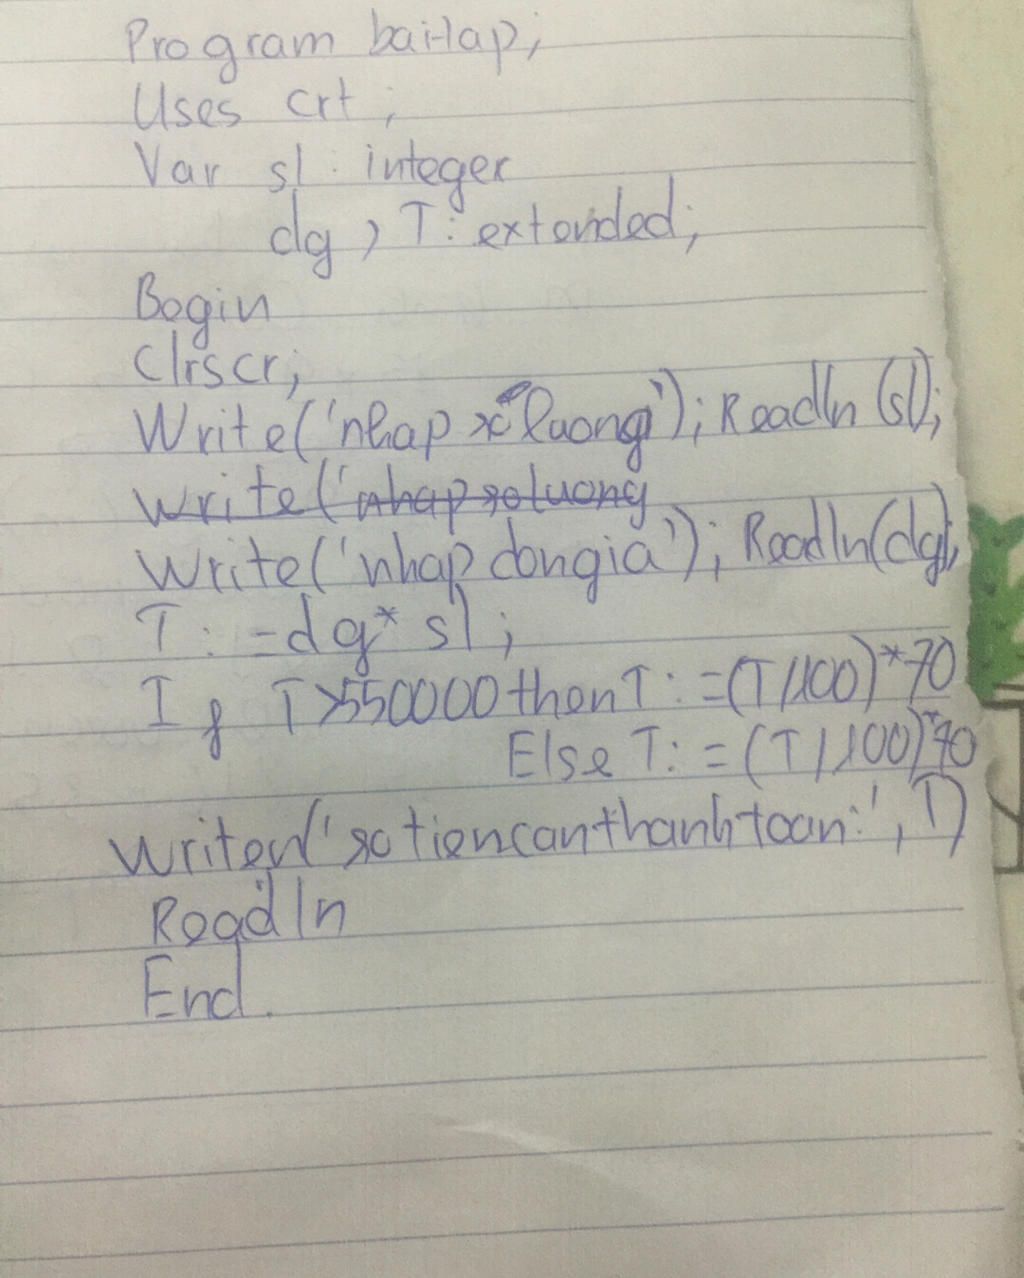 Program baitap;
Uses crt;
Var sl : integer
dg, T: extended;
Begin
Clrscr;
Write('nhap so luong'); Readln (sl);
Write('nhap soluong
Write('nhap dongia'); Readln(dg);
T := dg* sl;
If T>550000 then T: =(T/100)*70
Else T: = (T/100)*70
Writeln('so tiencanthanhtoan:', T)
Readln
End.